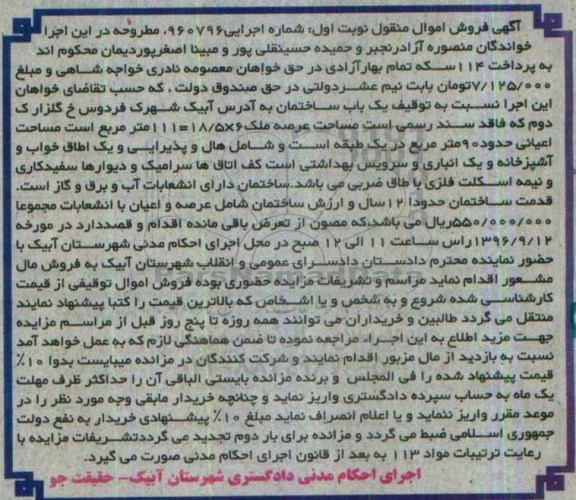 آگهی فروش اموال منقول نوبت اول: شماره اجرایی۹۶۰۷۹۶، مطروحه در این اجرا
خواندگان منصوره آزادرنجبر و حمیده حسینقلی پور و مبینا اصغرپوردیمان محکوم اند
به پرداخت ۱۱۴سکه تمام بهارآزادی در حق خواهان معصومه نادری خواجه شاهی و مبلغ
۷/۱۲۵/۰۰۰تومان بابت نیم عشردولتی در حق صندوق دولت ، که حسب تقاضای خواهان
این اجرا نسبت به توقیف یک باب ساختمان به آدرس آبیک شهرک فردوس خ گلزار ک
دوم که فاقد سند رسمی است مساحت عرصه ملک۶×۱۸/۵=۱۱۱متر مربع است مساحت
اعیانی حدود۹۰متر مربع در یک طبقه است و شامل هال و پذیرایی و یک اطاق خواب و
آشپزخانه و یک انباری و سرویس بهداشتی است کف اتاق ها سرامیک و دیوارها سفیدکاری
و نیمه اسکلت فلزی با طاق ضربی می باشد.ساختمان دارای انشعابات آب و برق و گاز است.
قدمت ساختمان حدودا ۱۲سال و ارزش ساختمان شامل عرصه و اعیان با انشعابات مجموعا
۵۵۰/۰۰۰/۰۰۰ریال می باشد،که مصون از تعرض باقی مانده اقدام و قصددارد در مورخه
۱۳۹۶/۹/۱۲راس ساعت ۱۱ الی ۱۲ صبح در محل اجرای احکام مدنی شهرستان آبیک با
حضور نماینده محترم دادستان دادسرای عمومی و انقلاب شهرستان آبیک به فروش مال
مشعور اقدام نماید مراسم و تشریفات مزایده حضوری بوده فروش اموال توقیفی از قیمت
کارشناسی شده شروع و به شخص و یا اشخاص که بالاترین قیمت را کتبا پیشنهاد نمایند
منتقل می گردد طالبین و خریداران می توانند همه روزه تا پنج روز قبل از مراسم مزایده
جهت مزید اطلاع به این اجراء مراجعه نموده تا ضمن هماهنگی لازم که به عمل خواهد آمد
نسبت به بازدید از مال مزبور اقدام نمایند و شرکت کنندگان در مزانده میبایست بدوا ۱۰٪
قیمت پیشنهاد شده را فی المجلس و برنده مزانده بایستی الباقی آن را حداکثر ظرف مهلت
یک ماه به حساب سپرده دادگستری واریز نماید و چنانچه خریدار مابقی وجه مورد نظر را در
موعد مقرر واریز ننماید و یا اعلام انصراف نماید مبلغ ۱۰٪ پیشنهادی خریدار به نفع دولت
جمهوری اسلامی ضبط می گردد و مزانده برای بار دوم تجدید می گرددتشریفات مزایده با
رعایت ترتیبات مواد ۱۱۳ به بعد از قانون اجرای احکام مدنی صورت می گیرد.
اجرای احکام مدنی دادگستری شهرستان آبیک- حقیقت جو